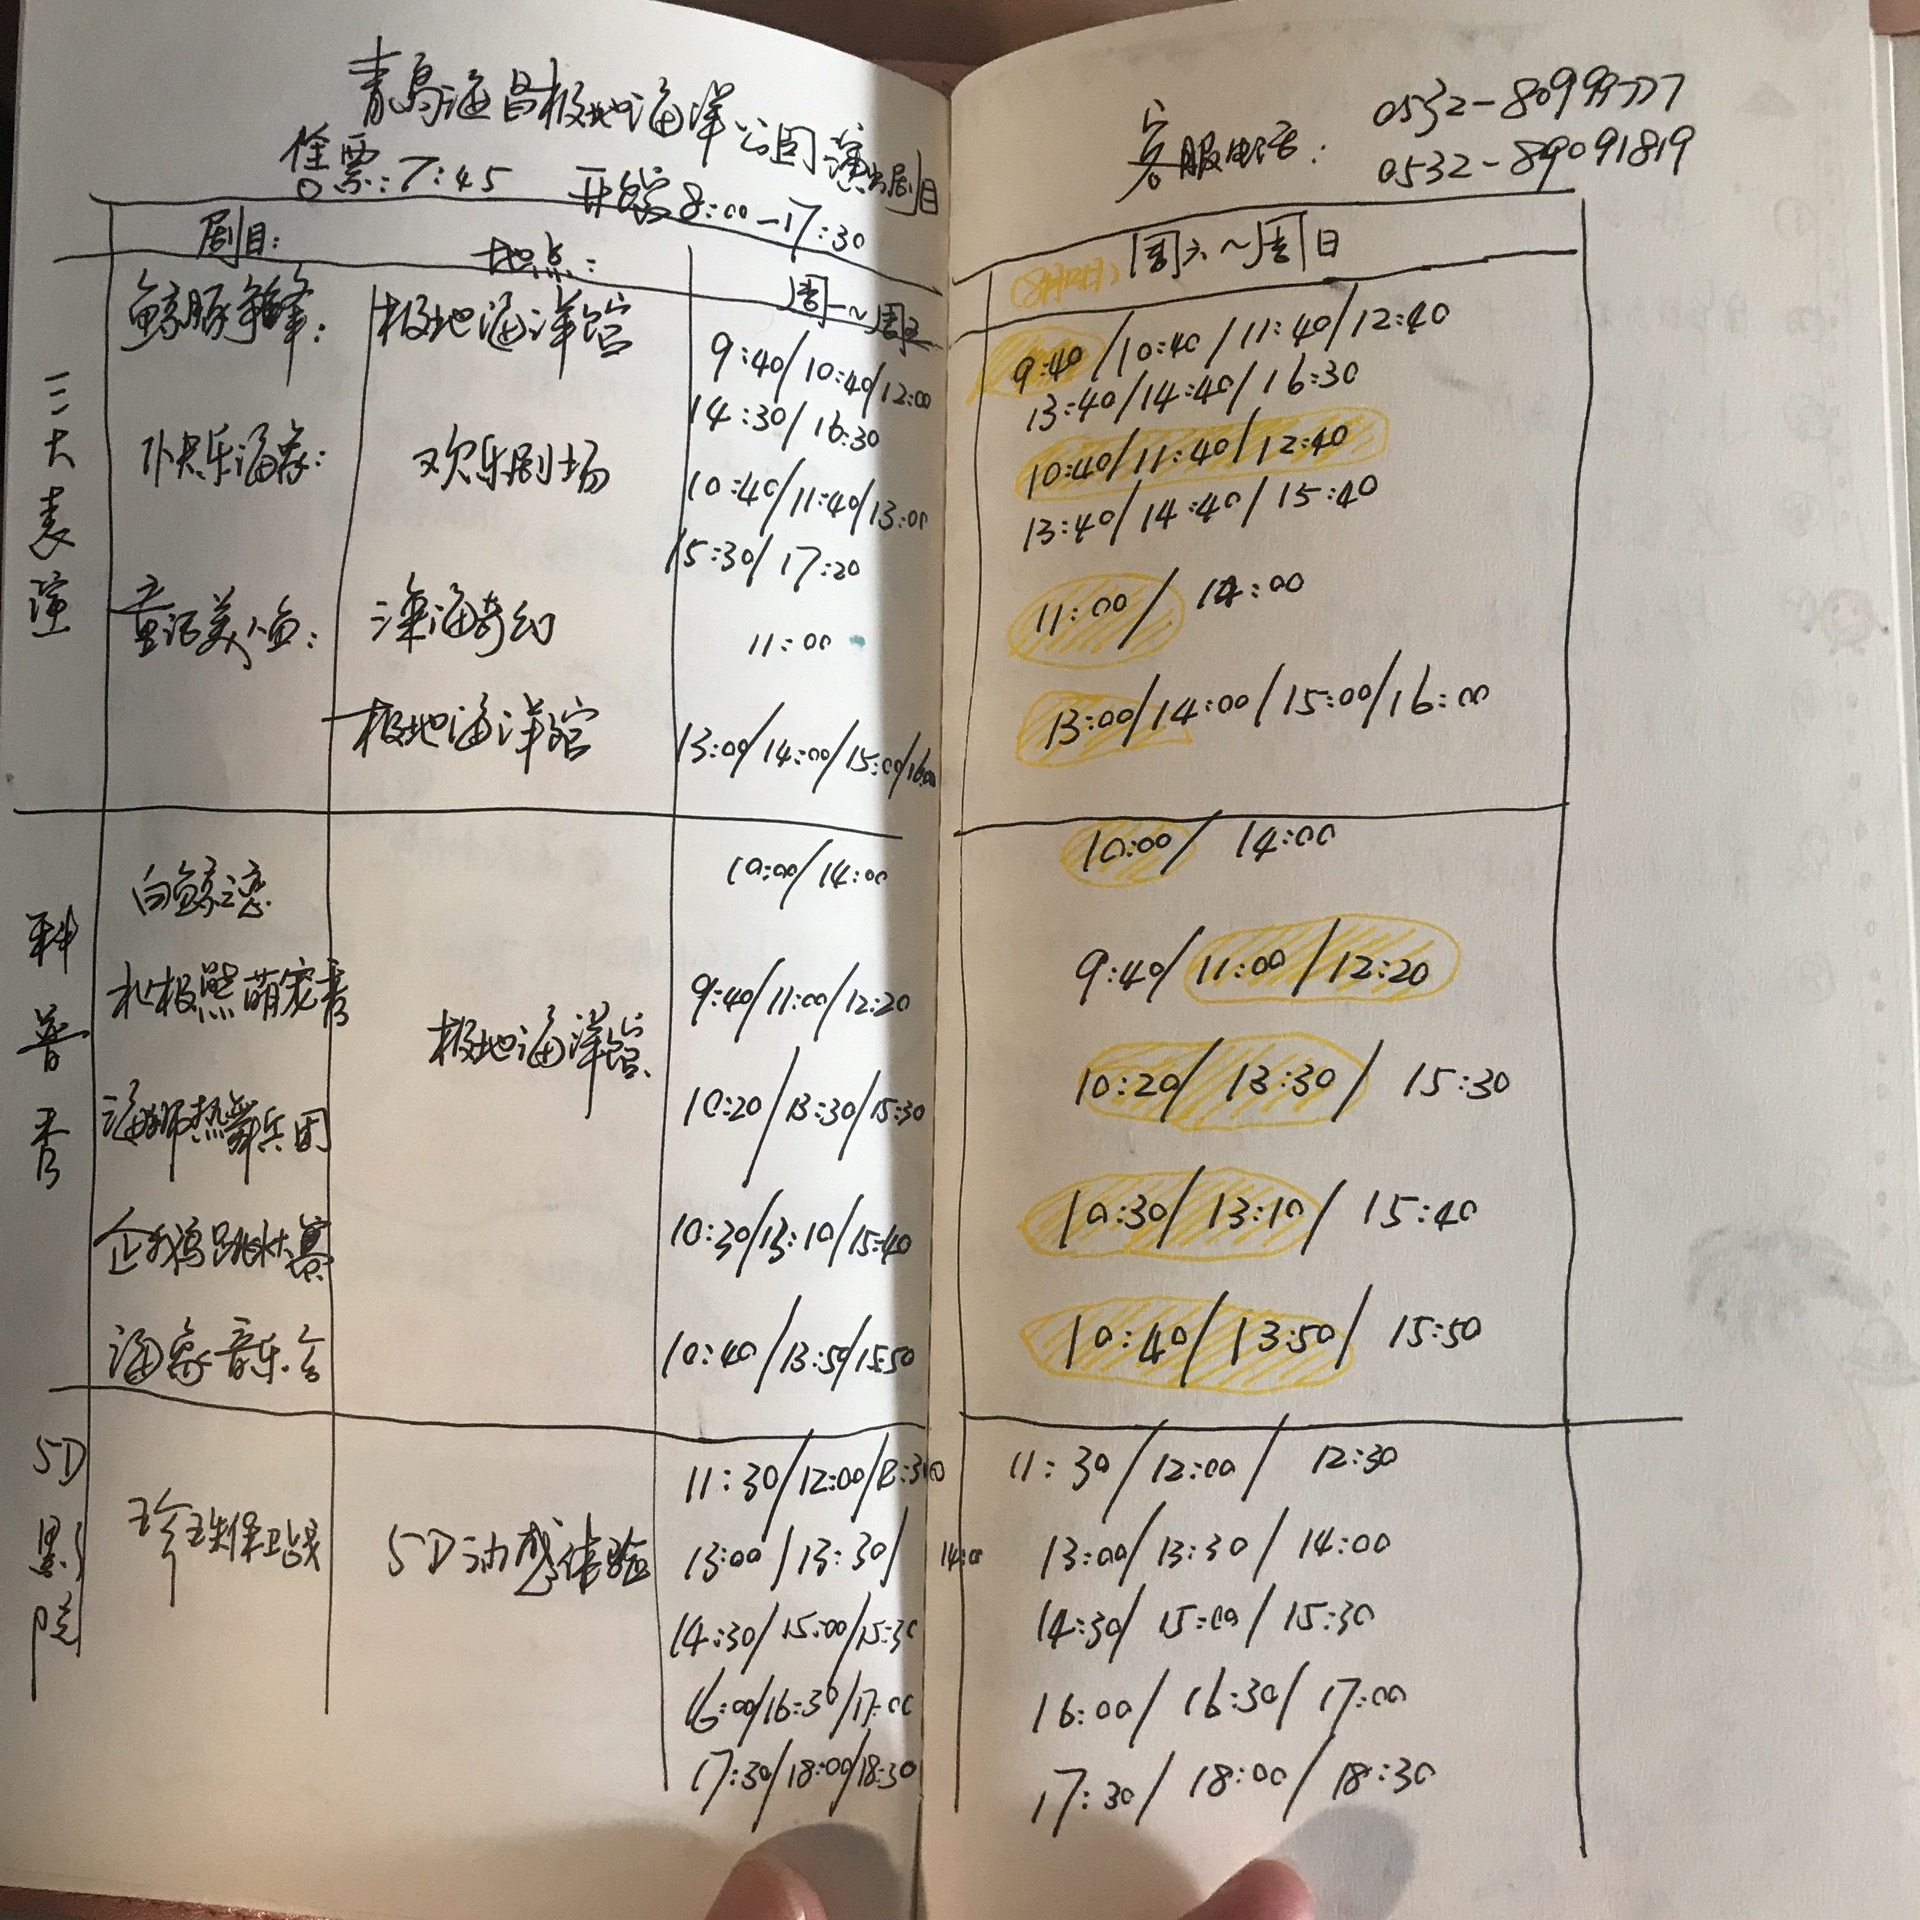 青岛海昌极地海洋公园演出剧目
售票:7:45 开馆8:00-17:30
剧目: 地点: 周一~周五
三大表演
鲸豚争锋: 极地海洋馆 9:40/10:40/12:00
14:30/16:30
快乐海象: 欢乐剧场 10:40/11:40/13:00
15:30/17:20
童话美人鱼: 深海奇幻 11:00
极地海洋馆 13:00/14:00/15:00/16:00
科普秀
白鲸之恋 10:00/14:00
北极熊萌宠秀 9:40/11:00/12:20
极地海洋馆
海狮热舞兵团 10:20/13:30/15:30
企鹅跳水大赛 10:30/13:10/15:40
海象音乐会 10:40/13:50/15:50
5D影院
珍珠保卫战 5D动感体验 11:30/12:00/12:30
13:00/13:30/14:00
14:30/15:00/15:30
16:00/16:30/17:00
17:30/18:00/18:30
客服电话: 0532-80999777
0532-89091819
周六~周日
9:40/10:40/11:40/12:40
13:40/14:40/16:30
10:40/11:40/12:40
13:40/14:40/15:40
11:00/14:00
13:00/14:00/15:00/16:00
10:00/14:00
9:40/11:00/12:20
10:20/13:30/15:30
10:30/13:10/15:40
10:40/13:50/15:50
11:30/12:00/12:30
13:00/13:30/14:00
14:30/15:00/15:30
16:00/16:30/17:00
17:30/18:00/18:30